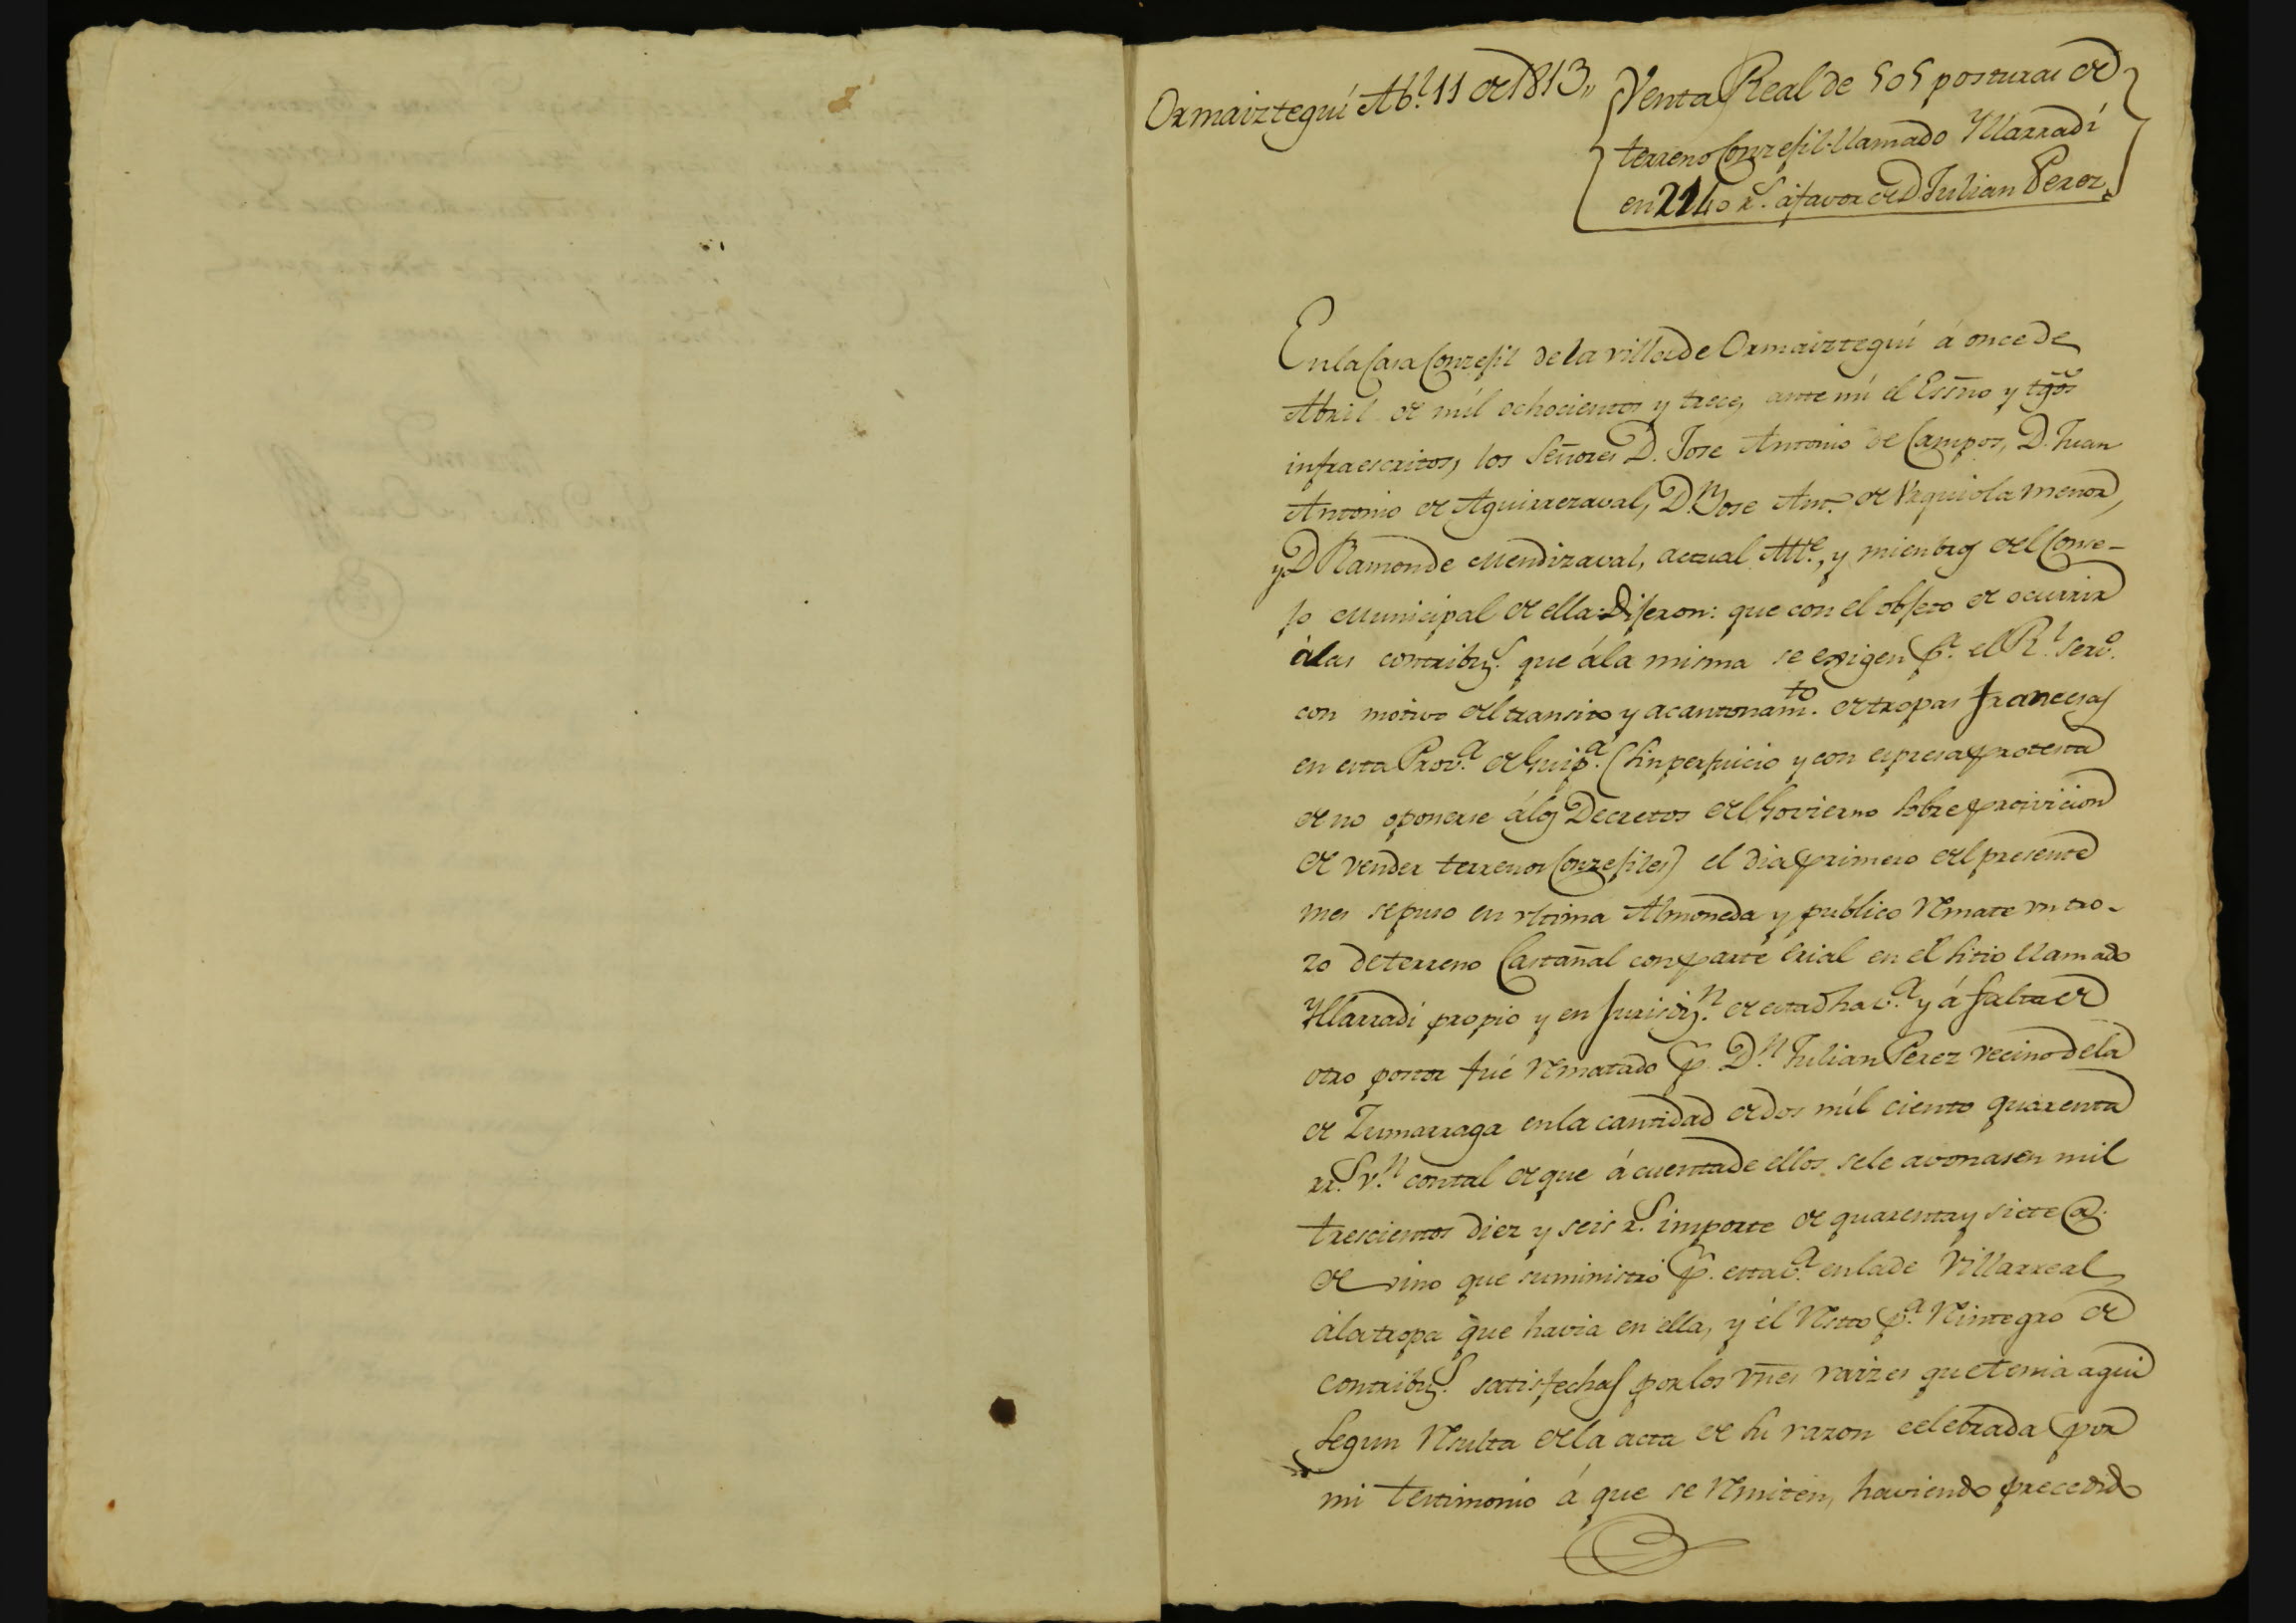 Ormaiztegui Ab.l 11 de 1813,,
Venta Real de 505 posturas de
terreno Conzejil llamado Yllarradi
en 2140 r.s á favor de D Julian Perez
En la Casa Conzejil de la villa de Ormaiztegui á once de
Abril de mil ochocientos y trece, ante mi el Essno y tgos
infraescritos, los Señores D. Jose Antonio de Campos, D. Juan
Antonio de Aguirrezaval, D.n Jose Ant.o de Urquiola menor,
y D Ramon de Mendizaval, actual Alc.e, y mienbros del Conse-
jo Municipal de ella: Dijeron: que con el objeto de ocurrir
á las contribuz.s que á la misma se exigen p.a el R.l serv.o
con motivo del transito y acantonam.to de tropas francesas
en esta Prov.a de Guip.a (sin perjuicio y con espresa protesta
de no oponerse á los Decretos del Govierno sobre proivicion
de vender terrenos Conzejiles) el dia primero del presente
mes se puso en ultima Almoneda y publico remate un tro-
zo de terreno Castañal con parte erial en el sitio llamado
Yllarradi propio y en jurisdiz.n de esta dha v.a y á falta de
otro postor fué rematado p. D.n Julian Perez vecino de la
de Zumarraga en la cantidad de dos mil ciento quarenta
rr.s v.n con tal de que á cuenta de ellos se le avonasen mil
trescientos diez y seis r.s importe de quarenta y siete @.
de vino que suministró p. esta v.a en la de Villarreal
á la tropa que havia en ella, y el resto p.a reintegro de
contribuz.s satisfechas por los vnes raizes que tenia aqui
segun resulta de la acta de su razon celebrada por
mi testimonio á que se remiten, haviendo precedido